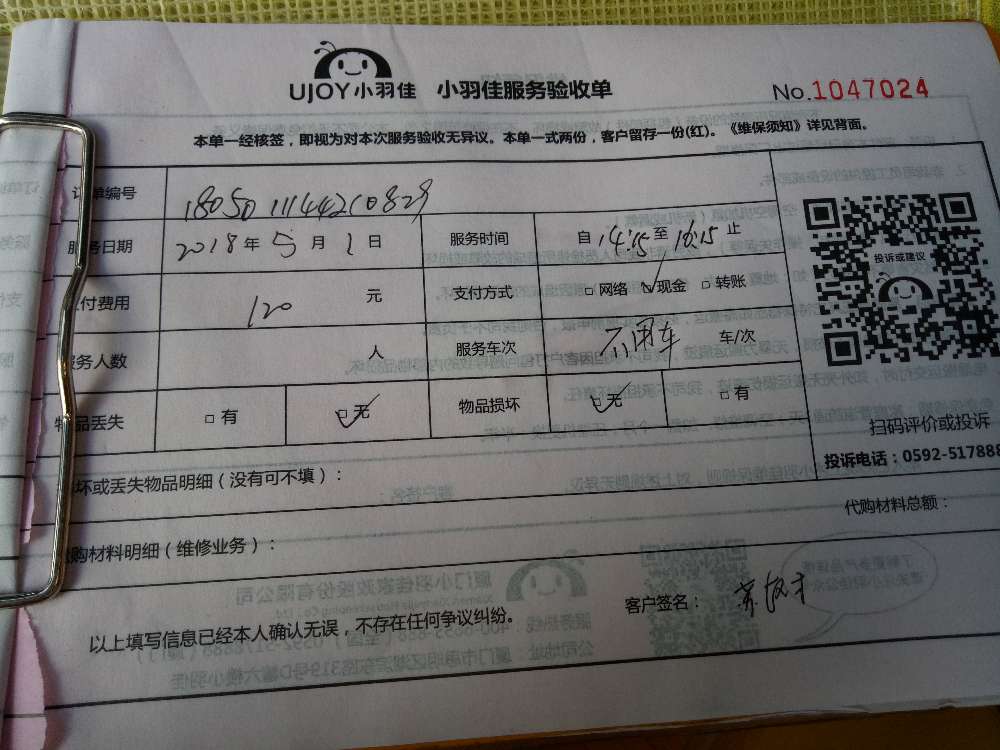 UJOY小羽佳 小羽佳服务验收单 No.1047024
本单一经核签，即视为对本次服务验收无异议。本单一式两份，客户留存一份(红)。《维保须知》详见背面。
单编号 180501114421082
服务日期 2018年5月1日 服务时间 自14:15至16:15止
付费用 120元 支付方式 □网络 ☑现金 □转账
务人数 人 服务车次 不用车 车/次
品丢失 □有 ☑无 物品损坏 ☑无 □有
投诉或建议
扫码评价或投诉
投诉电话：0592-517888
坏或丢失物品明细（没有可不填）：
购材料明细（维修业务）： 代购材料总额：
以上填写信息已经本人确认无误，不存在任何争议纠纷。 客户签名：